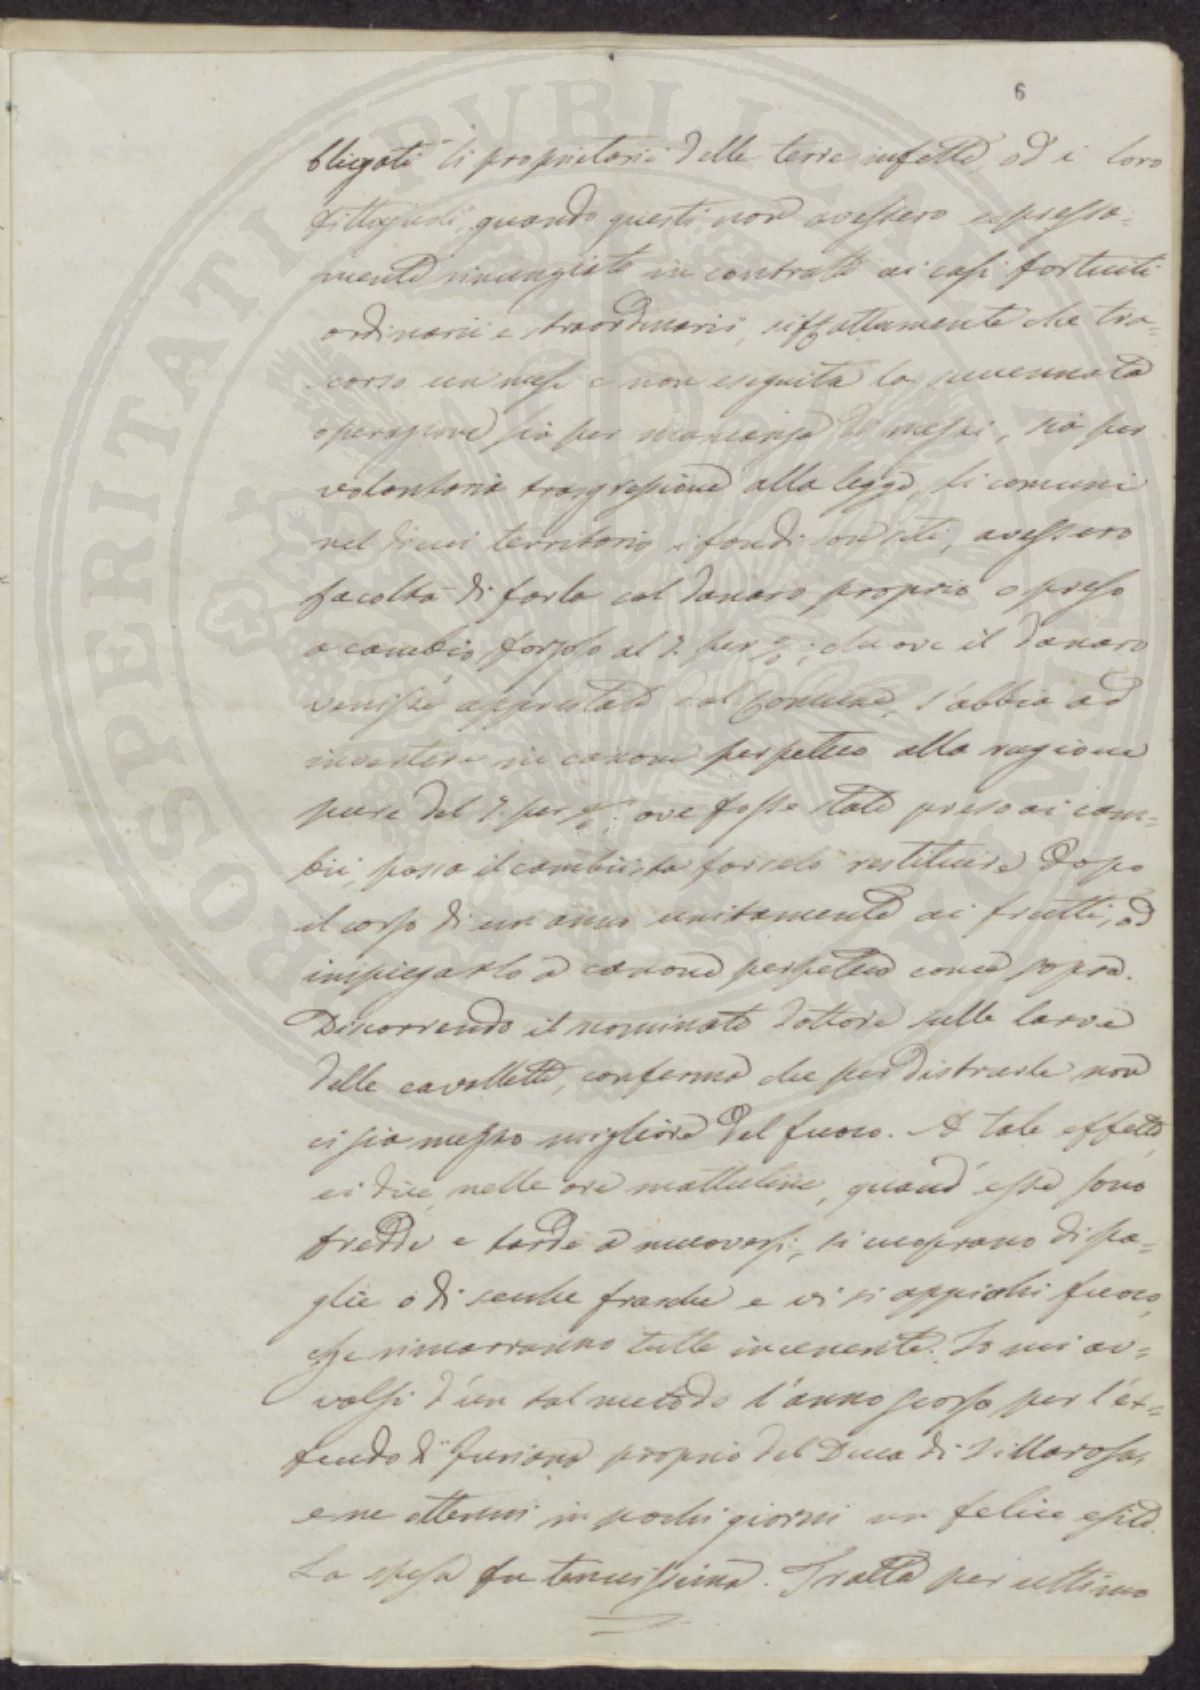 6
bligati li proprietarii delle terre infette, od i loro
fittajuoli, quando questi non avessero espressa=
mente rinunziato in contratto ai casi fortuiti
ordinarii e straordinarii, siffattamente che tra=
scorso un mese e non eseguita la suvennata
operazione sia per mancanza di mezzi, sia per
volontaria trasgressione alla legge, li comuni
nel di cui territorio i fondi son siti, avessero
facoltà di farla col danaro proprio o preso
a cambio forzoso al 7. per %; che ove il danaro
venisse apprestato dal Comune, s'abbia ad
invertire in canone perpetuo alla ragione
pure del 7. per %; ove fosse stato preso ai cam=
bii, possa il cambiista farselo restituire dopo
il corso di un anno unitamente ai frutti, od
impiegarlo a canone perpetuo come sopra.
Discorrendo il nominato dottore sulle larve
delle cavallette, conferma che per distrarle non
ci sia mezzo migliore del fuoco. A tale effetto,
ei dice, nelle ore mattutine, quand'esse sono
fredde e tarde a muoversi, si cuoprano di pa=
glie o di secche frasche e vi si appicchi fuoco,
che rimarranno tutte incenerite. Io mi av=
valsi d'un tal metodo l'anno scorso per l'ex=
feudo di Juriana proprio del Duca di Villarosa,
e ne ottenni in pochi giorni un felice esito.
La spesa fu tenuissima. Tratta per ultimo
PROSPERITATI PUBLICAE